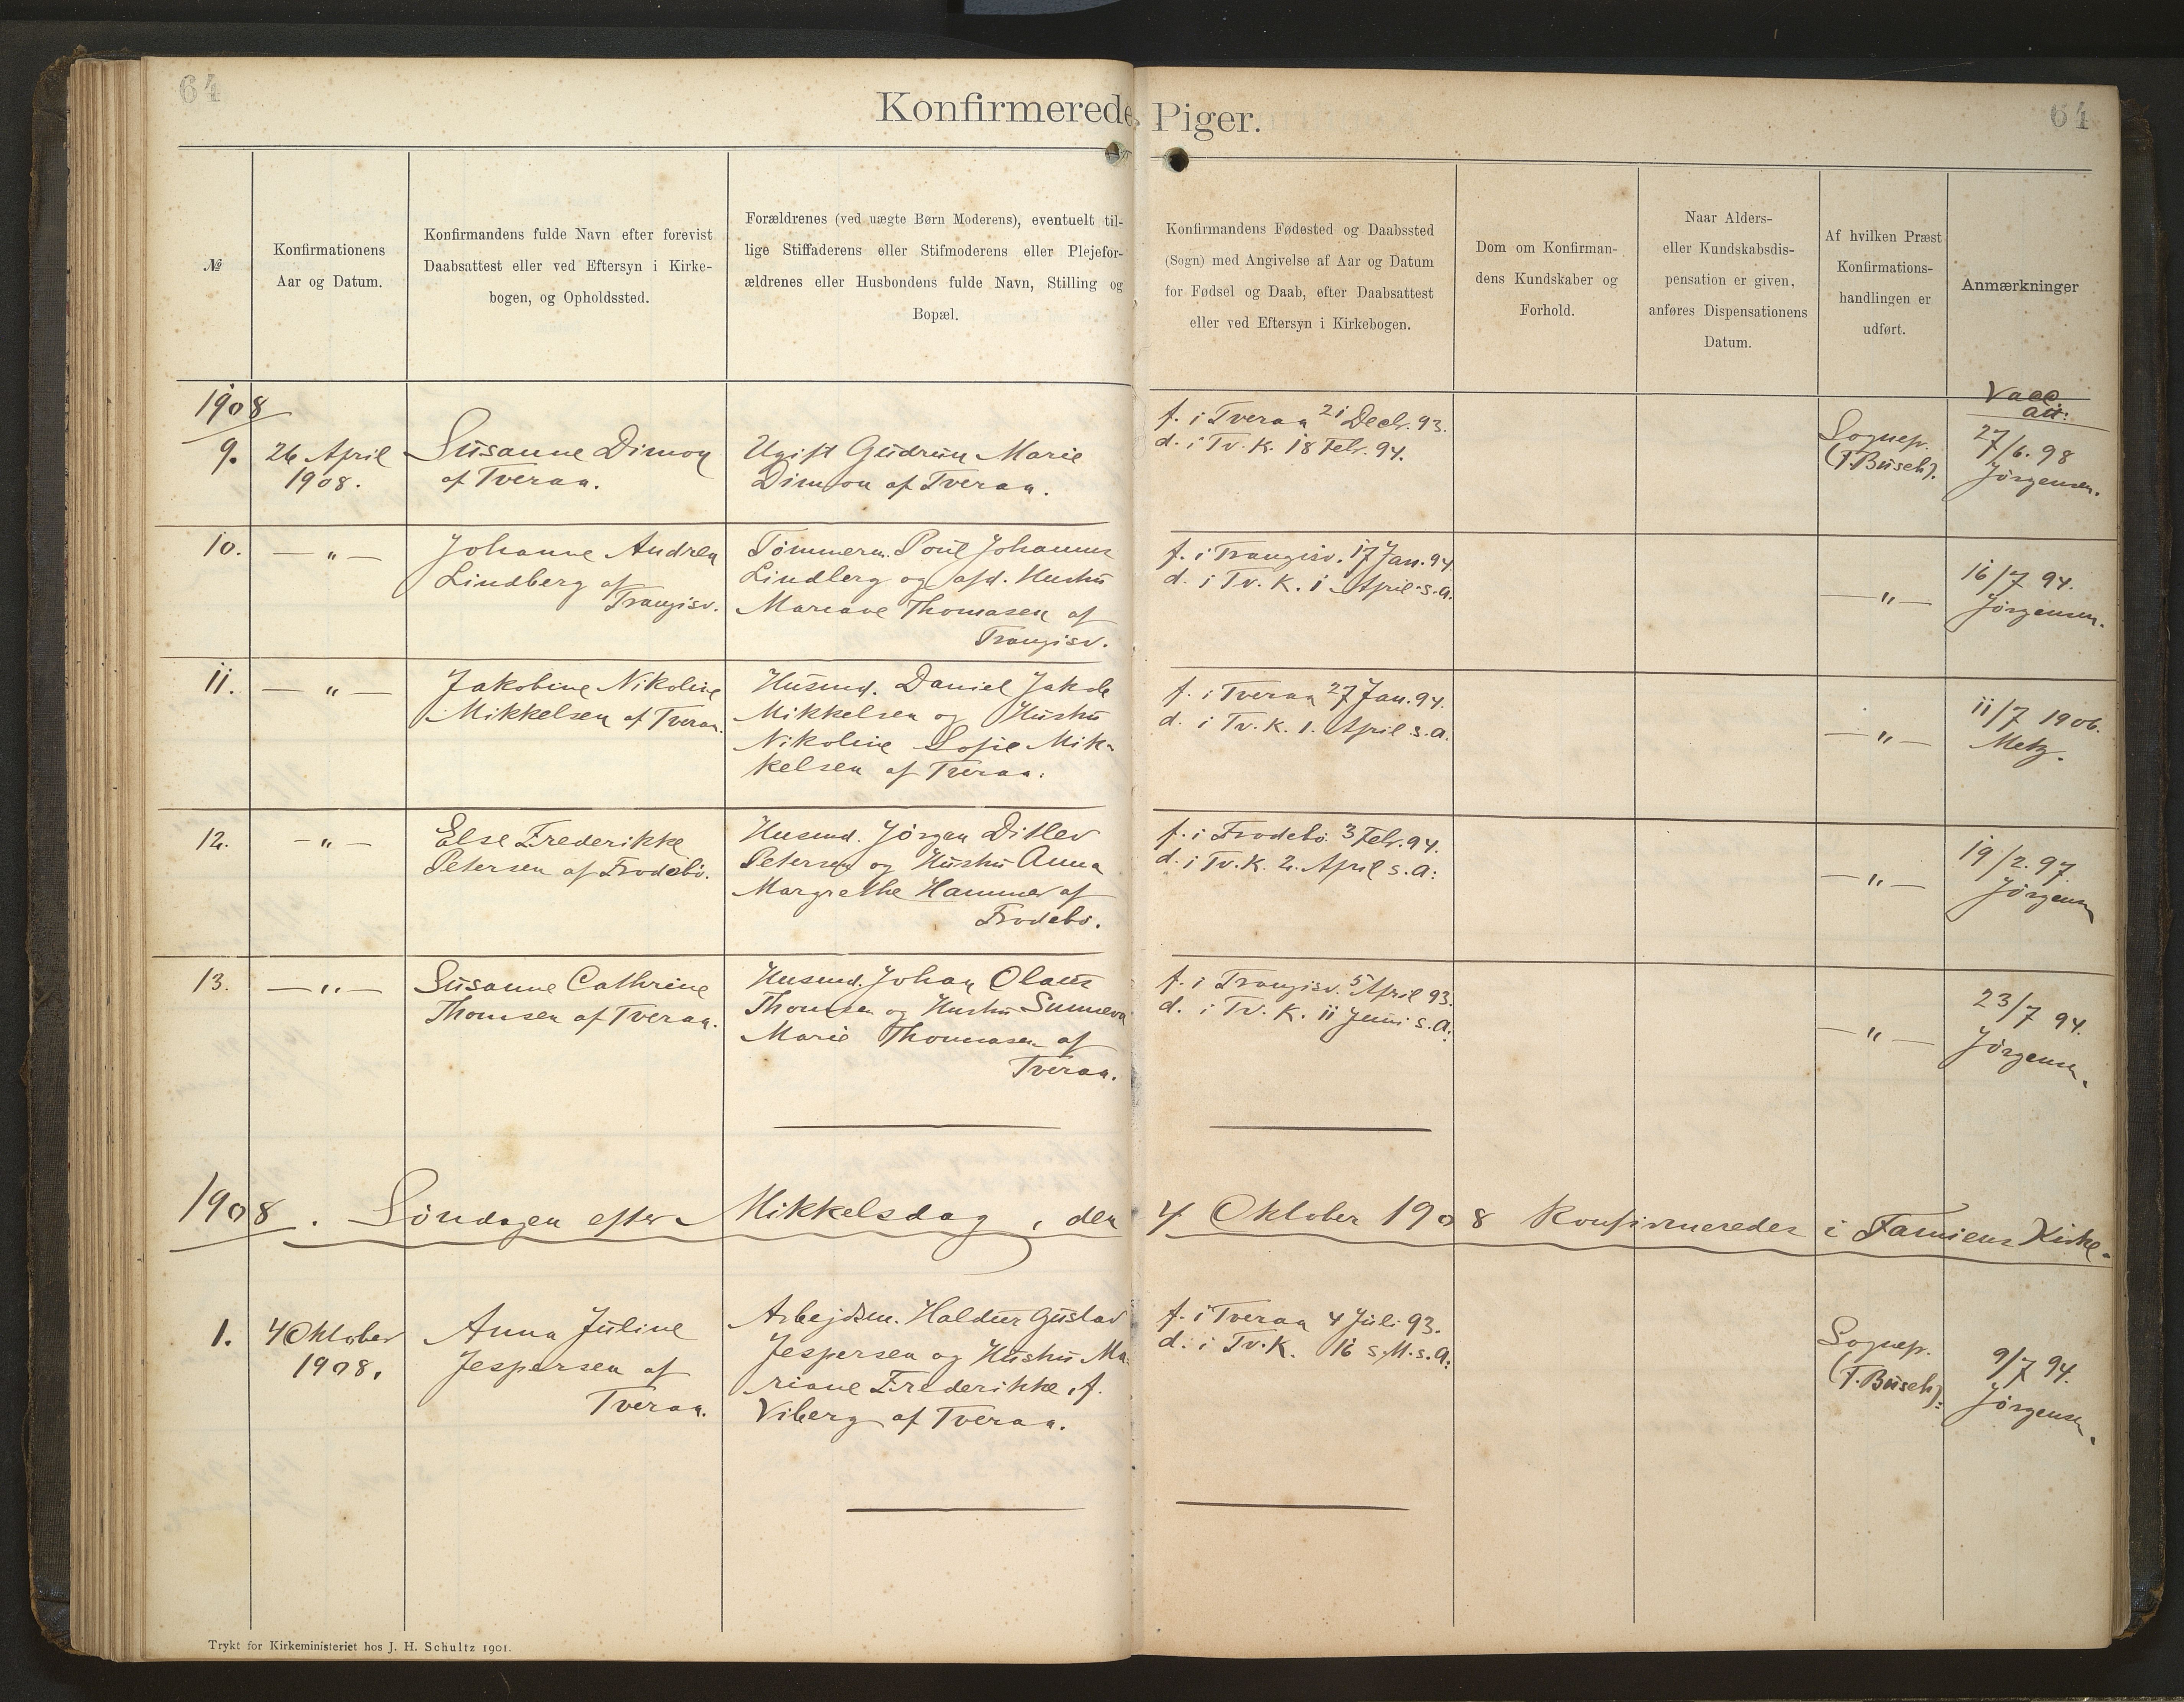 64
Konfirmerede Piger.
64
№
Konfirmationens
Aar og Datum.
Konfirmandens fulde Navn efter forevist
Daabsattest eller ved Eftersyn i Kirke-
bogen, og Opholdssted.
Forældrenes (ved uægte Børn Moderens), eventuelt til-
lige Stiffaderens eller Stifmoderens eller Plejefor-
ældrenes eller Husbondens fulde Navn, Stilling og
Bopæl.
Konfirmandens Fødested og Daabssted
(Sogn) med Angivelse af Aar og Datum
for Fødsel og Daab, efter Daabsattest
eller ved Eftersyn i Kirkebogen.
Dom om Konfirman-
dens Kundskaber og
Forhold.
Naar Alders-
eller Kundskabsdis-
pensation er given,
anføres Dispensationens
Datum.
Af hvilken Præst
Konfirmations-
handlingen er
udført.
Anmærkninger
1908
9.
26 April
1908.
Susanne Dimon
af Tveraa.
Ugift Gudrun Marie
Dimon af Tveraa.
f. i Tveraa 21 Decb. 93.
d. i Tv. K. 18 Febr. 94.
Sognep.
(F. Busch).
Vacc.
att:
27/6. 98
Jörgensen.
10.
— " —
Johanne Andrea
Lindberg af
Trangisv.
Tömmerm. Poul Johannes
Lindberg og afd. Hustru
Mariane Thomasen af
Trangisv.
f. i Trangisv. 17 Jan. 94
d. i Tv. K. 1 April s. a.
— " —
16/7 94.
Jörgensen.
11.
— " —
Jakobine Nikoline
Mikkelsen af Tveraa.
Husmd. Daniel Jakob
Mikkelsen og Hustru
Nikoline Sofie Mik-
kelsen af Tveraa.
f. i Tveraa 27 Jan. 94.
d. i Tv. K. 1. April s. a.
— " —
11/7 1906.
Metz.
12.
— " —
Else Frederikke
Petersen af Frodebö.
Husmd. Jörgen Ditlev
Petersen og Hustru Anna
Margrethe Hammer af
Frodebö.
f. i Frodebö 3 Febr. 94.
d. i Tv. K. 2. April s. a:
— " —
19/2. 97.
Jörgensen
13.
— " —
Susanne Cathrine
Thomsen af Tveraa.
Husmd. Johan Olaus
Thomsen og Hustru Sunneva
Marie Thomasen af
Tveraa.
f. i Trangisv. 5 April 93.
d. i Tv. K. 11 Juni s. a:
— " —
23/7 94.
Jörgensen.
1908. Söndagen efter Mikkelsdag, den 4 Oktober 1908 konfirmeredes i Famiens Kirke.
1.
4 Oktober
1908.
Anna Juline
Jespersen af
Tveraa.
Arbejdsm. Haldur Gustav
Jespersen og Hustru Ma-
riane Frederikke, f.
Viberg af Tveraa.
f. i Tveraa 4 Juli 93.
d. i Tv. K. 16 s. M. s. a:
Sognep.
(F. Busch).
9/7 94.
Jörgensen.
Trykt for Kirkeministeriet hos J. H. Schultz 1901.